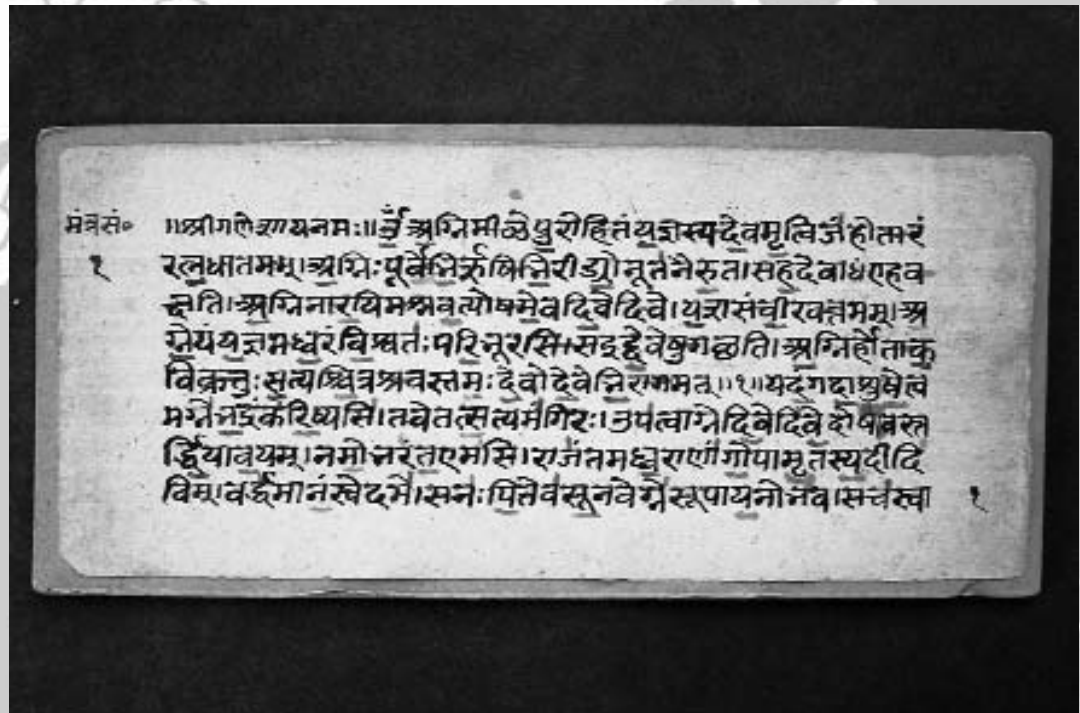 मंत्रसं॰ ॥श्रीगणेशायनमः॥ॐअग्निमीळेपुरोहितंयज्ञस्यदेवमृत्विजंहोतारं
१ रत्नधातमम्।अग्निःपूर्वेभिर्ऋषिभिरीड्योनूतनैरुत।सहदेवाꣳएहव
क्षति।अग्निनारयिमश्नवत्पोषमेवदिवेदिवे।यशसंवीरवत्तमम्।अ
ग्नेयंयज्ञमध्वरंविश्वतःपरिभूरसि।सइद्देवेषुगच्छति।अग्निर्होताक
विक्रतुःसत्यश्चित्रश्रवस्तमःदेवोदेवेभिरागमत्॥१॥यदंगदाशुषेत्व
मग्नेभद्रंकरिष्यसि।तवेतत्सत्यमंगिरः।उपत्वाग्नेदिवेदिवेदोषावस्त
र्द्धियावयम्।नमोभरंतएमसि।राजंतमध्वराणांगोपामृतस्यदीदि
विम्।वर्द्धमानंस्वेदमे।सनःपितेवसूनवेग्नेसूपायनोभव।सचस्वा १